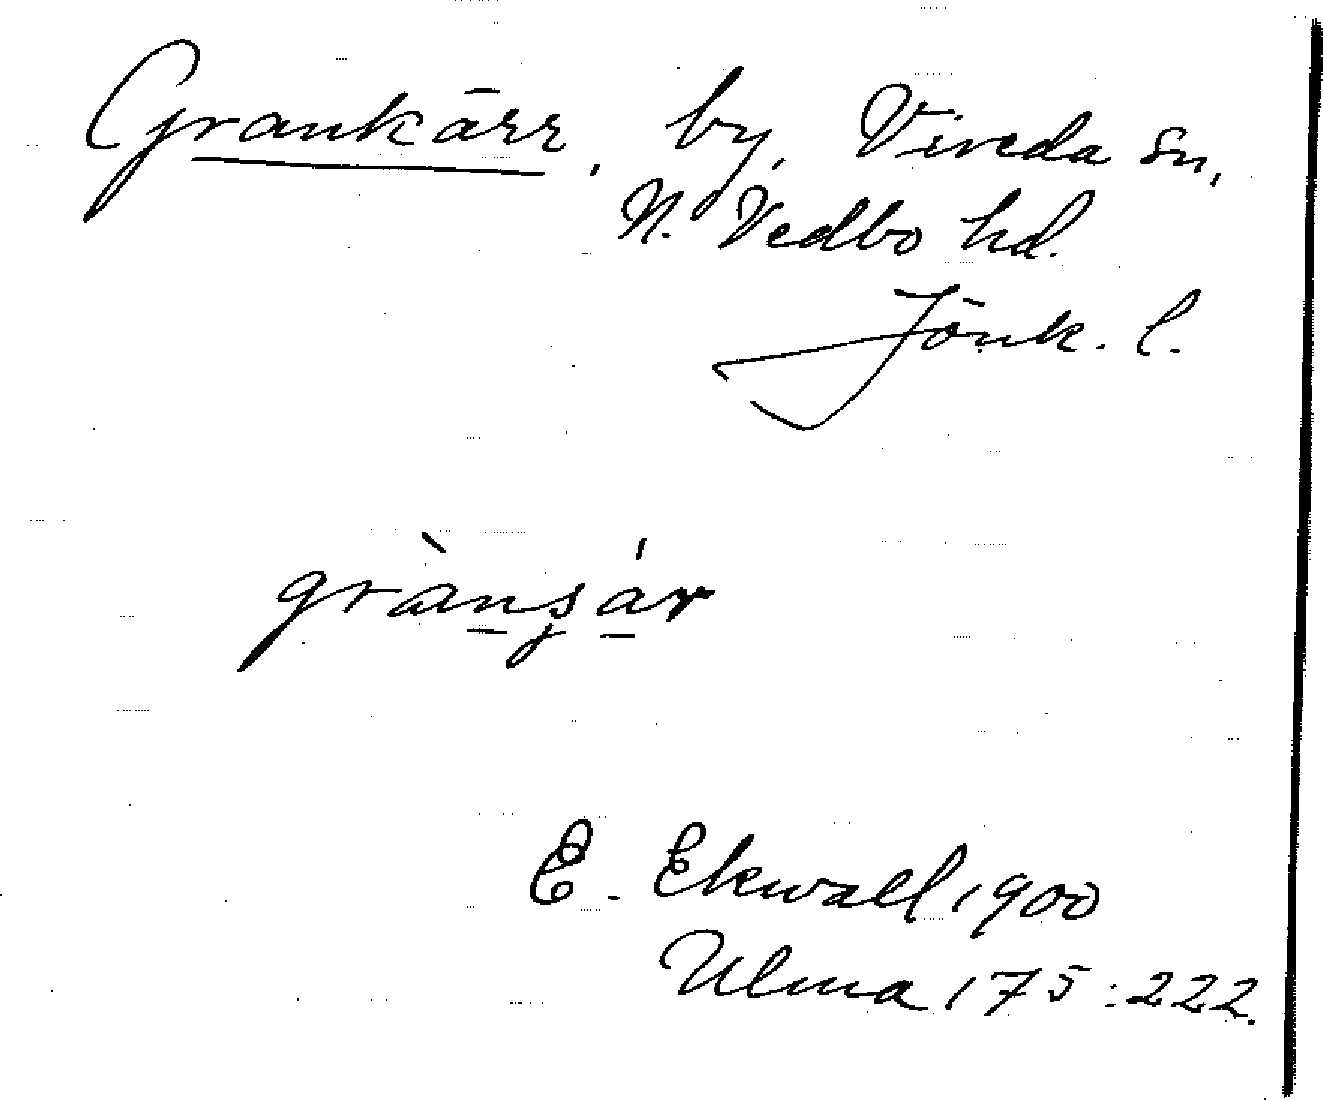 Grankärr, by, Vireda sn,
N. Vedbo hd.
Jönk. l.
E. Ekwall 1900
Ulma 175:222.